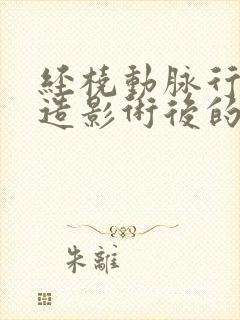 经桡動脉行
造影術後的
朱離